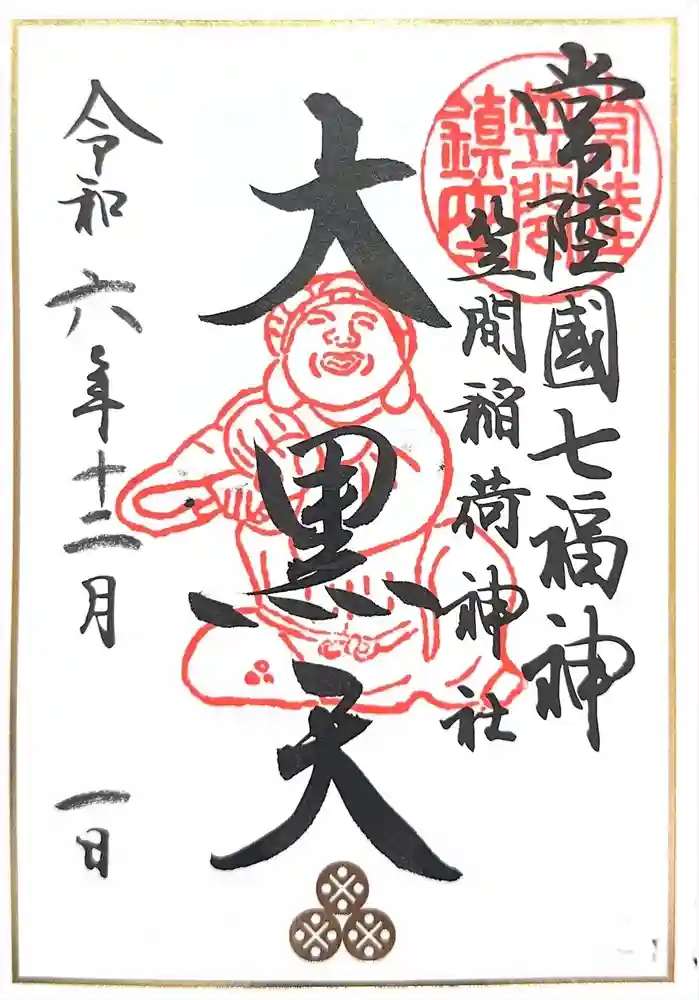 常陸國七福神
笠間稲荷神社
常陸
笠間
鎮座
大黒天
令和六年十二月 一日